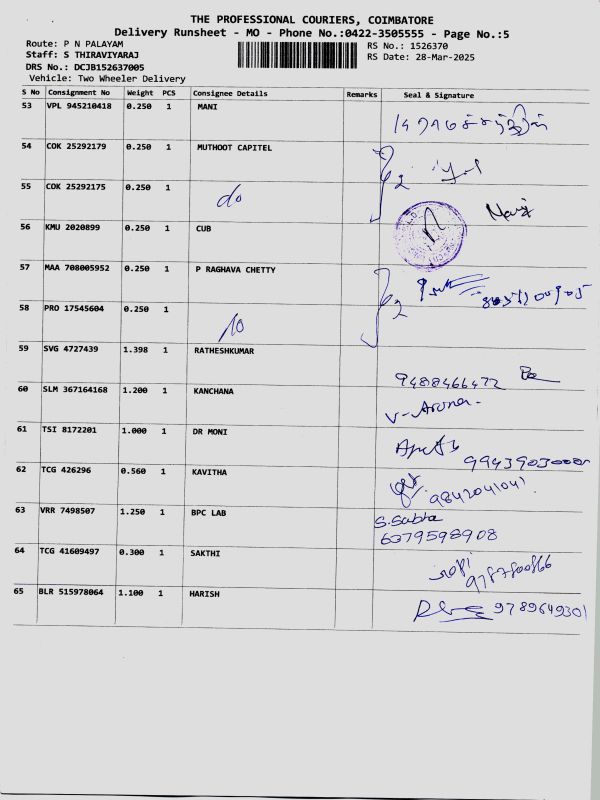 THE PROFESSIONAL COURIERS, COIMBATORE
Delivery Runsheet - MO - Phone No.:0422-3505555 - Page No.:5
Route: P N PALAYAM
RS No.: 1526370
Staff: S THIRAVIYARAJ
RS Date: 28-Mar-2025
DRS No.: DCJB152637005
Vehicle: Two Wheeler Delivery
S No Consignment No Weight PCS Consignee Details Remarks Seal & Signature
53 VPL 945210418 0.250 1 MANI
54 COK 25292179 0.250 1 MUTHOOT CAPITEL
55 COK 25292175 0.250 1 do
56 KMU 2020899 0.250 1 CUB
57 MAA 708005952 0.250 1 P RAGHAVA CHETTY
58 PRO 17545604 0.250 1
59 SVG 4727439 1.398 1 RATHESHKUMAR 9488466472
60 SLM 367164168 1.200 1 KANCHANA V-Aruna-
61 TSI 8172201 1.000 1 DR MONI
62 TCG 426296 0.560 1 KAVITHA 9842041041
63 VRR 7498507 1.250 1 BPC LAB S.Subha
6379598908
64 TCG 41609497 0.300 1 SAKTHI
65 BLR 515978064 1.100 1 HARISH 9789649301